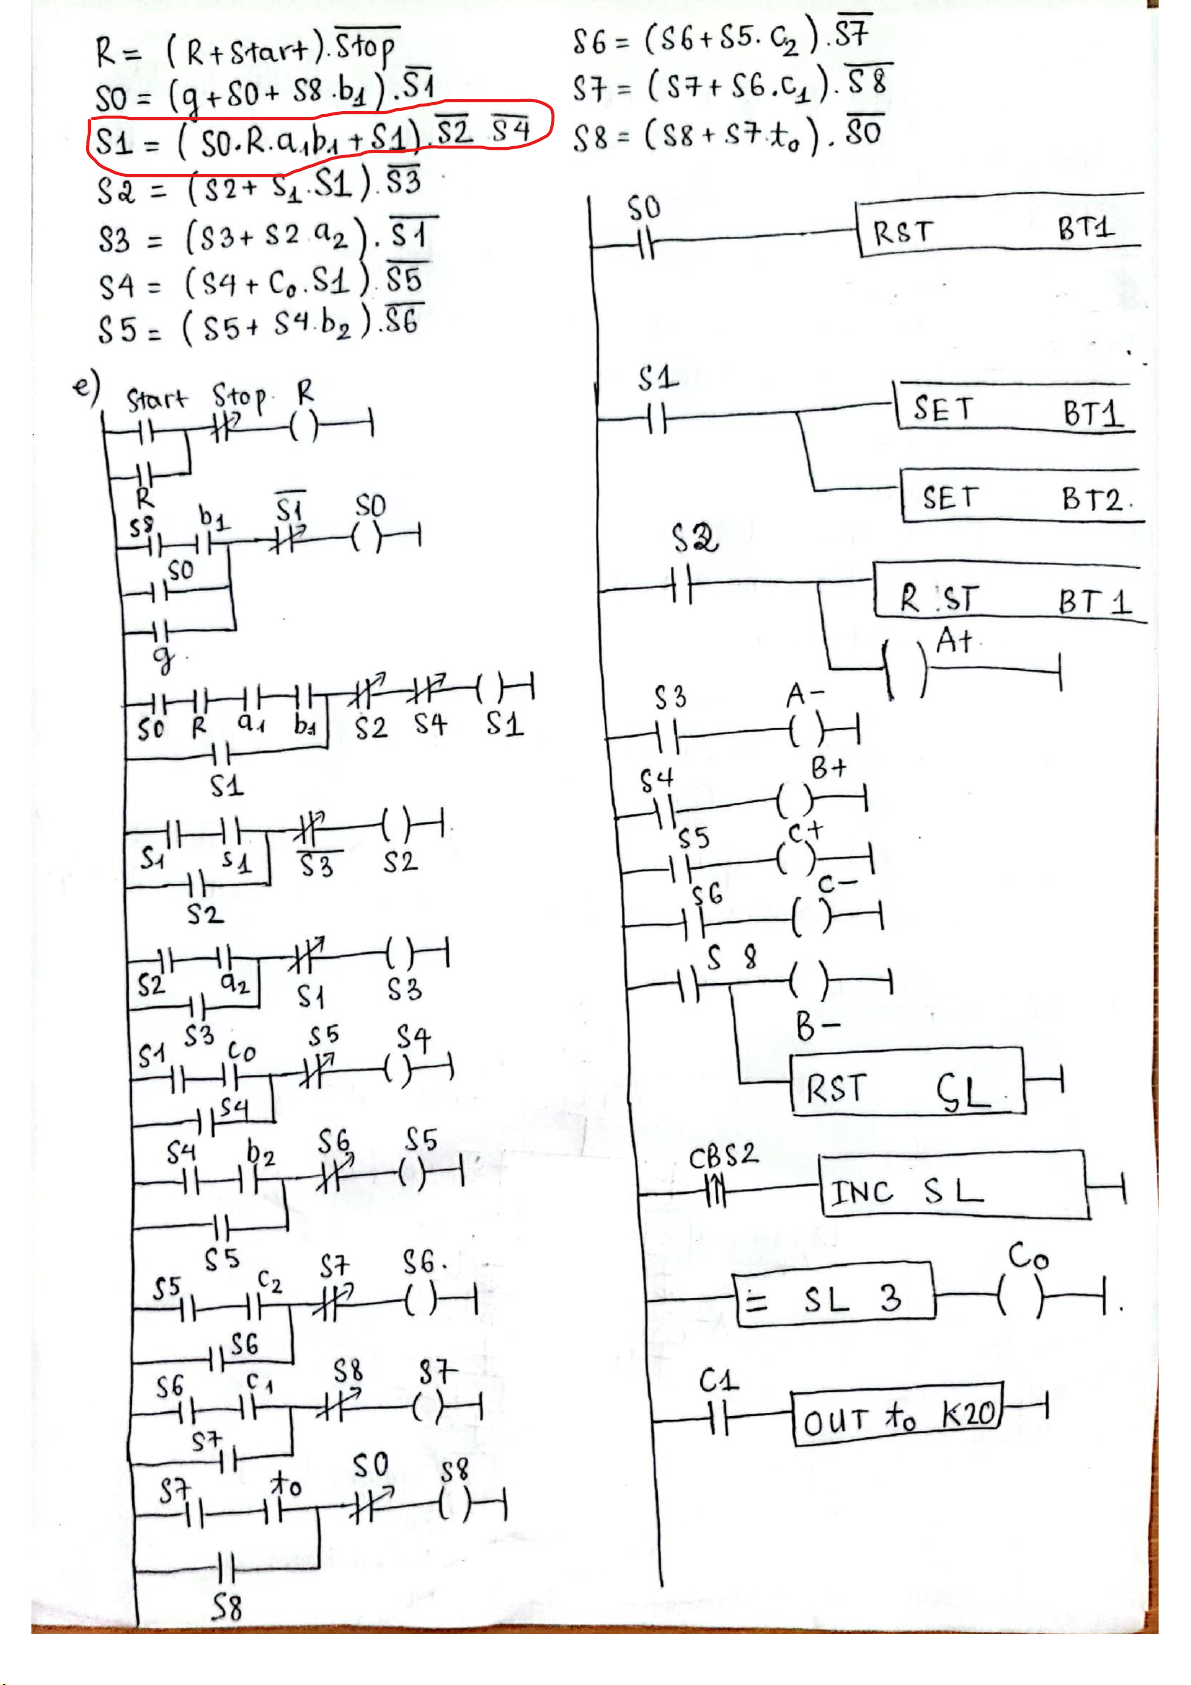 R = (R + Start).S̅t̅o̅p̅
S0 = (g + S0 + S8.b₁).S̅1̅
S1 = (S0.R.a₁b₁ + S1).S̅2̅ S̅4̅
S2 = (S2 + S₁.S1).S̅3̅
S3 = (S3 + S2.a₂).S̅1̅
S4 = (S4 + C₀.S1).S̅5̅
S5 = (S5 + S4.b₂).S̅6̅
S6 = (S6 + S5.C₂).S̅7̅
S7 = (S7 + S6.C₁).S̅8̅
S8 = (S8 + S7.t₀).S̅0̅
e)
Start Stop R
R
S8 b₁ S̅1̅ S0
S0
g
S0 R a₁ b₁ S2 S4 S1
S1
S₁ S1 S̅3̅ S2
S2
S2 a₂ S1 S3
S3
S1 C₀ S5 S4
S4
S4 b₂ S6 S5
S5
S5 C₂ S7 S6.
S6
S6 C₁ S8 S7
S7
S7 t₀ S0 S8
S8
S0
RST BT1
S1
SET BT1
SET BT2.
S2
RST BT1
A+
S3 A-
S4 B+
S5 C+
S6 C-
S8
B-
RST SL
CBS2
INC SL
= SL 3 C₀
C1
OUT t₀ K20